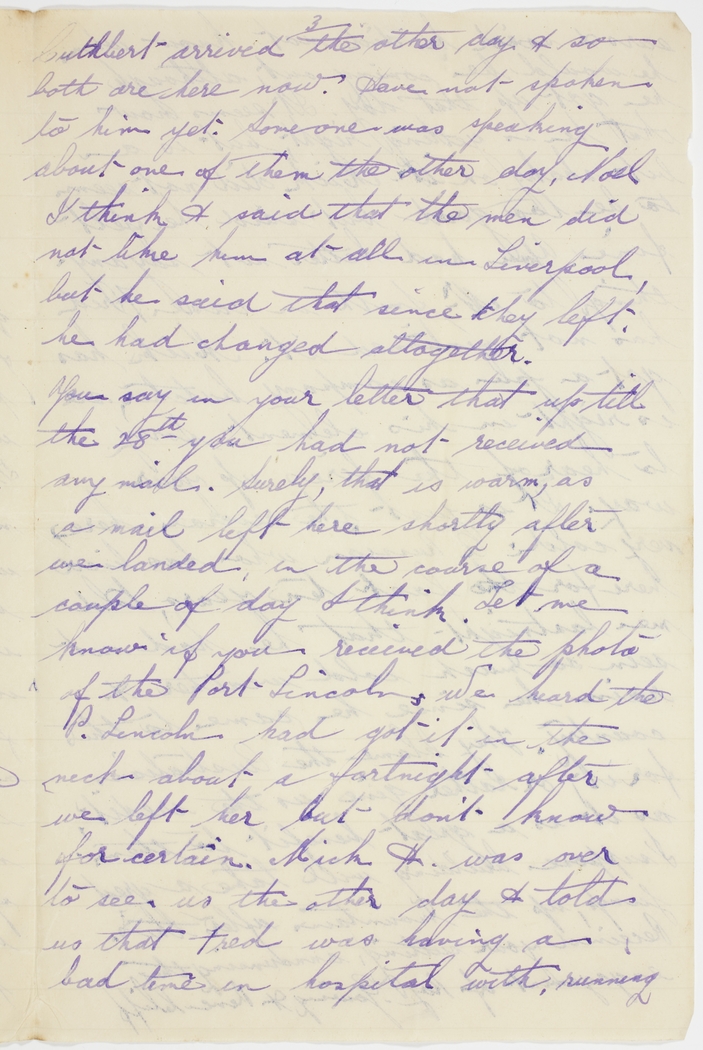 3
Cuthbert arrived the other day & so
both are here now. Have not spoken
to him yet. Someone was speaking
about one of them the other day, Noel
I think & said that the men did
not like him at all in Liverpool,
but he said that since they left.
he had changed altogether.
You say in your letter that up till
the 28th you had not received
any mail. Surely, that is warm, as
a mail left here shortly after
we landed, in the course of a
couple of day I think. Let me
know if you received the photo
of the Port Lincoln, We heard the
P. Lincoln had got it in the
neck about a fortnight after
we left her but don't know
for certain. Mick H. was over
to see us the other day & told
us that Fred was having a
bad time in hospital with, running